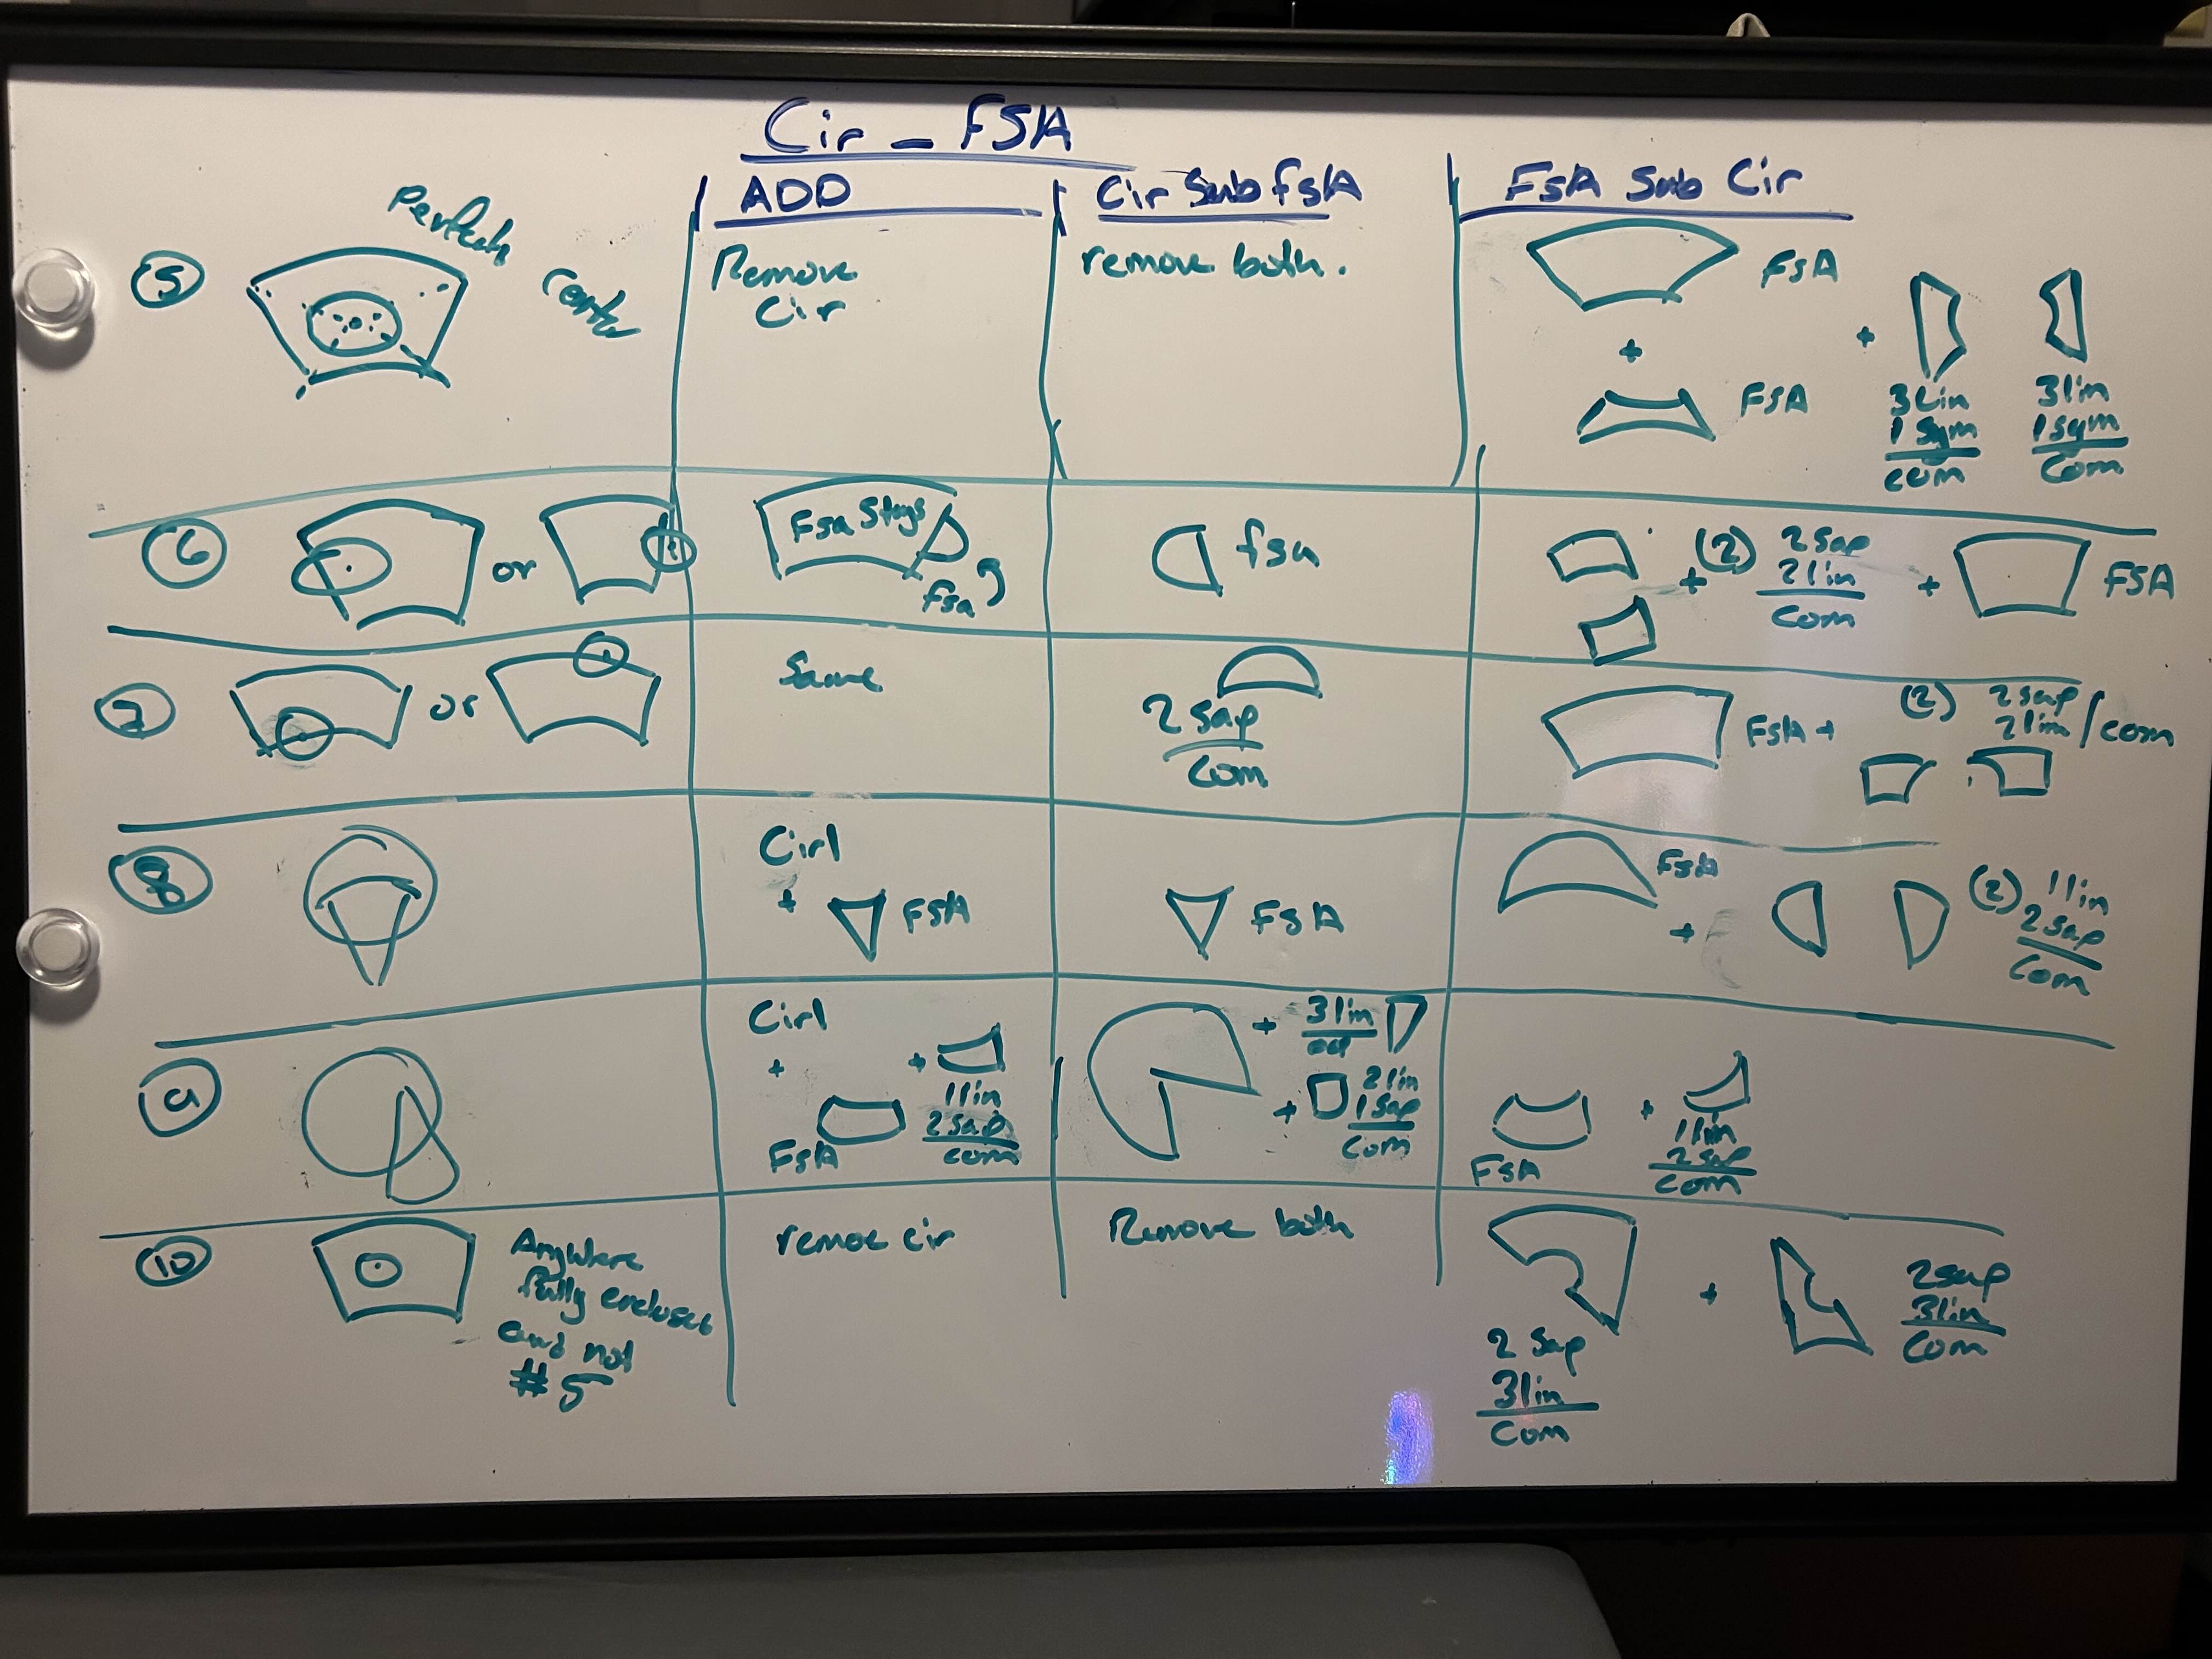 Cir - FSA
ADD
Cir Sub fsA
FSA Sub Cir
5
Remove
Cir
remove both.
FSA
+
FSA
+
3 Lin
1 sym
com
3 lin
1 sym
Com
6
or
Fsa Stays
fsa
fsa
+
(2)
2 sap
2 lin
Com
+
FSA
7
or
Same
2 sap
Com
FSA +
(2)
2 sap
2 lin / com
8
Cirl
+
FSA
FSA
FSA
+
(2)
1 lin
2 sap
Com
9
Cirl
+
FSA
+
1 lin
2 sap
com
+
3 lin
+
2 lin
1 sap
Com
FSA
+
1 lin
2 sap
Com
10
Anywhere
fully encloses
and not
# 5
remoe cir
Remove both
2 sap
3 lin
Com
+
2 sap
3 lin
Com